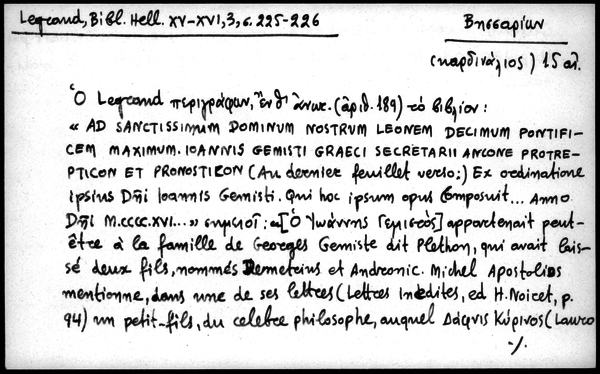 Legrand, Bibl. Hell. XV-XVI, 3, σ. 225-226
Βησσαρίων
(καρδινάλιος) 15 αἰ.
Ὁ Legrand περιγράφων, ἔνθ' ἀνωτ. (ἀριθ. 189) τὸ βιβλίον:
« AD SANCTISSIMUM DOMINUM NOSTRUM LEONEM DECIMUM PONTIFI-
CEM MAXIMUM. IOANNIS GEMISTI GRAECI SECRETARII ANCONE PROTRE-
PTICON ET PRONOSTICON (Au dernier feuillet verso:) Ex ordinatione
ipsius Dn̄i Ioannis Gemisti. Qui hoc ipsum opus Composuit... Anno
Dn̄i M.CCCC.XVI...» σημειοῖ: «[Ὁ Ἰωάννης Γεμιστὸς] appartenait peut-
être à la famille de Georges Gemiste dit Plethon, qui avait lais-
sé deux fils, nommés Demetrius et Andronic. Michel Apostolios
mentionne, dans une de ses lettres (Lettres Inédites, ed H. Noiret, p.
94) un petit-fils, du celebre philosophe, auquel Δάφνις Κύρινος (Lauro
-/.